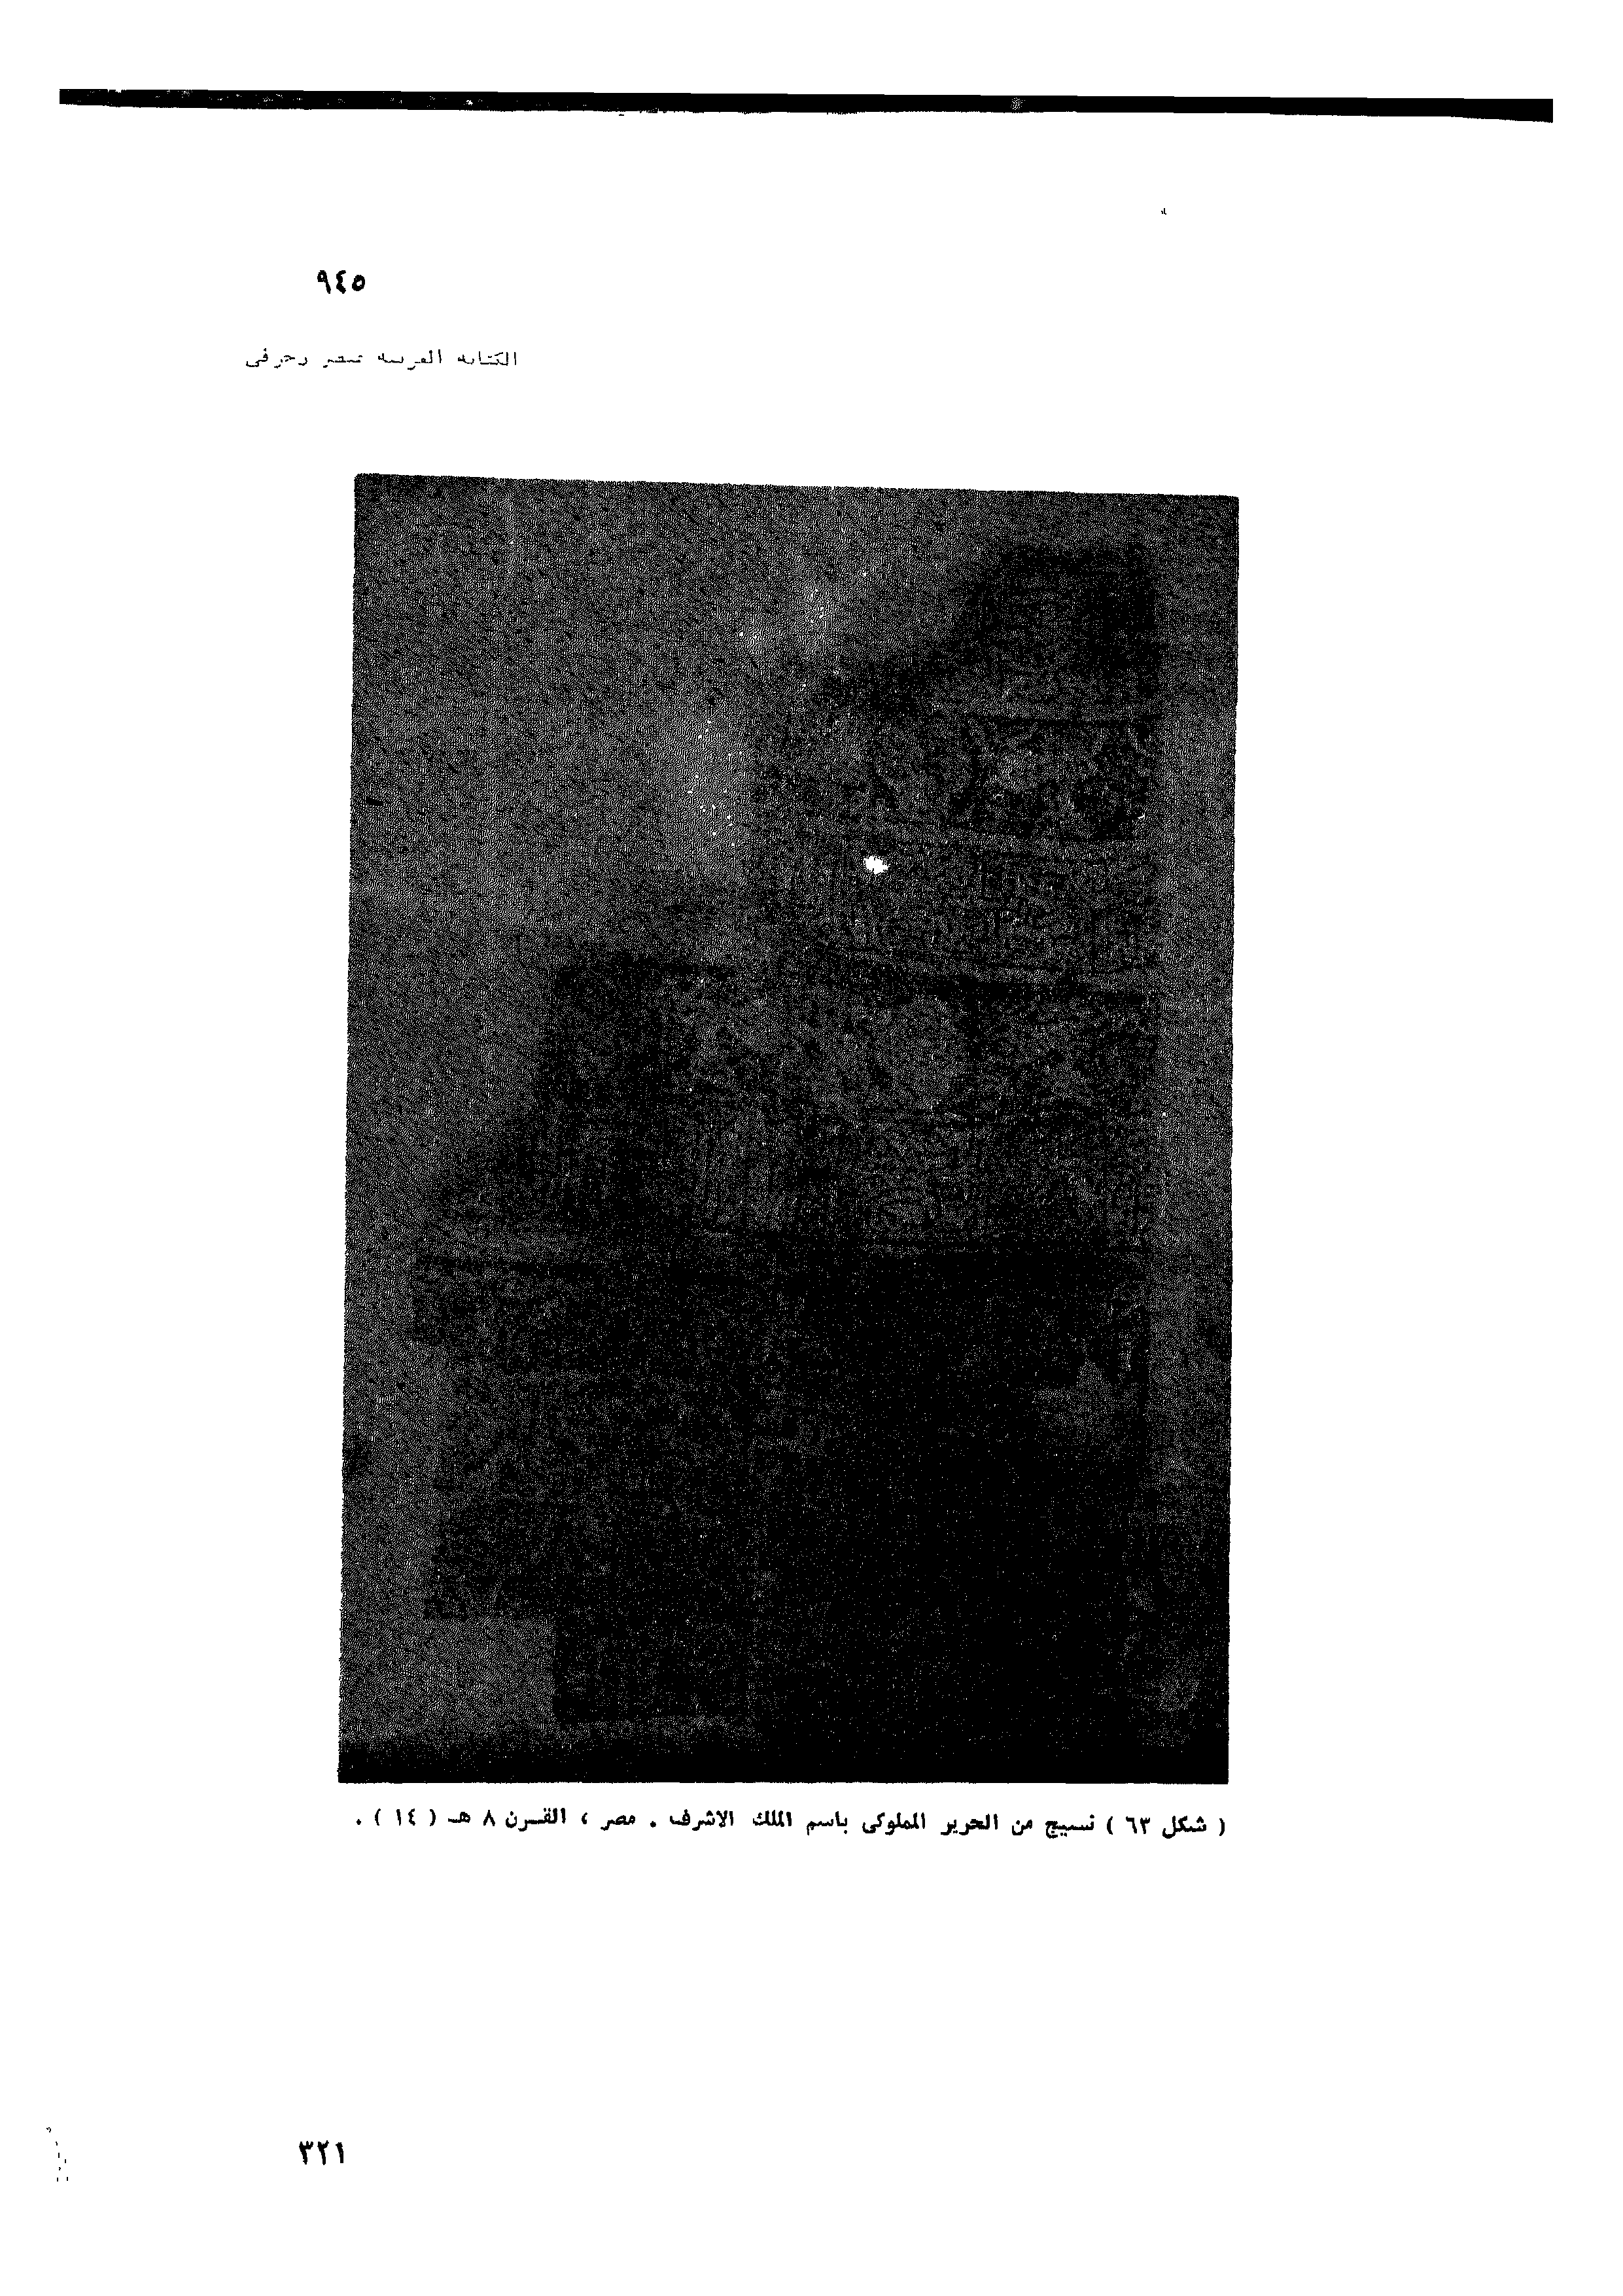 ٩٤٥
الكتابة العربية عنصر زخرفى
( شكل ٦٣ ) نسيج من الحرير المملوكى باسم الملك الاشرف . مصر ، القـرن ٨ هـ ( ١٤ ) .
٣٢١